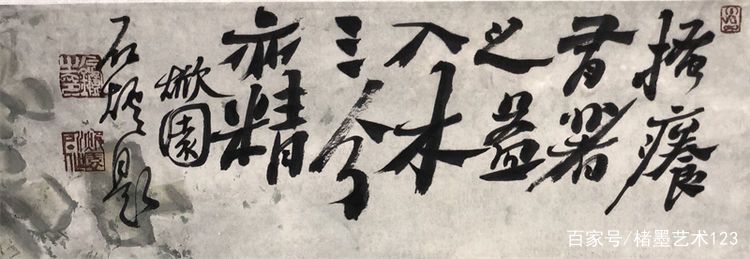 搔癢
有著
之益
入木
三分
亦精
園
石題
百家号/楮墨艺术123